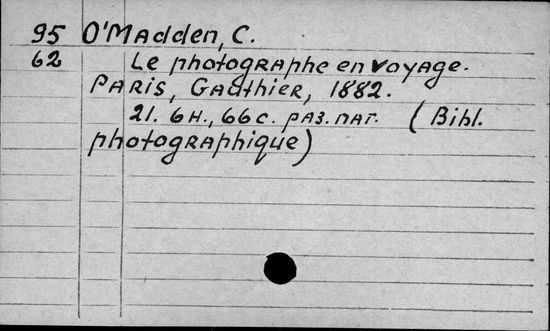 95 O'Madden, C.
62 Le photographe en voyage.
Paris, Gauthier, 1882.
21. 6 н., 66 с. раз. паг. (Bibl.
photographique)